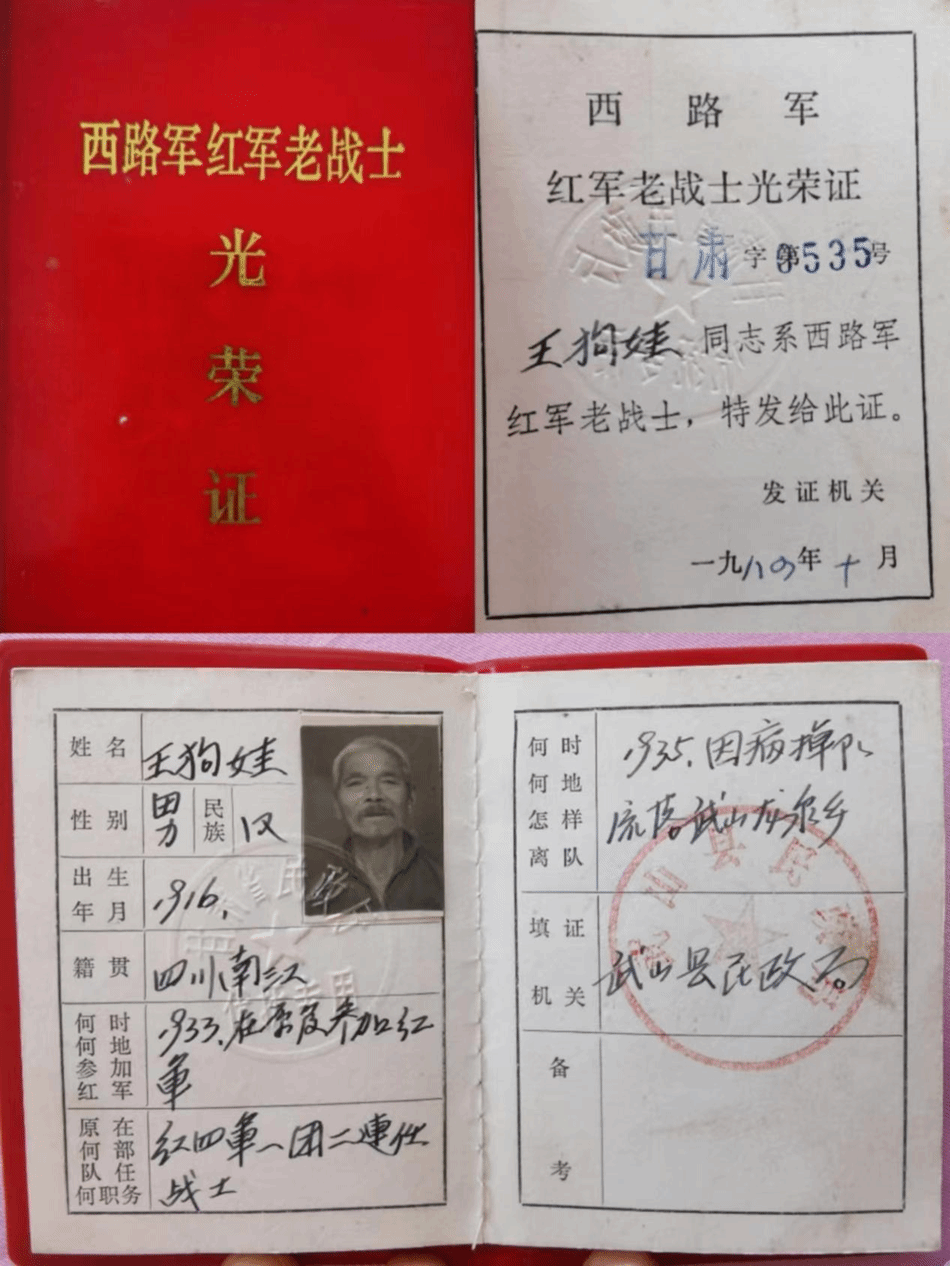 西路军红军老战士
光
荣
证
西路军
红军老战士光荣证
甘肃字第0535号
王狗娃同志系西路军
红军老战士，特发给此证。
发证机关
一九八四年十月
姓名 王狗娃
性别 男 民族 汉
出生年月 1916.
籍贯 四川南江
何时何地参加红军 1933.在原籍参加红
軍
原在何部队任何职务 红四軍一团二連任
战士
何时何地怎样离队 1935.因病掉队
流落武山龙泉乡
填证机关 武山县民政局
武山县民政局
备考